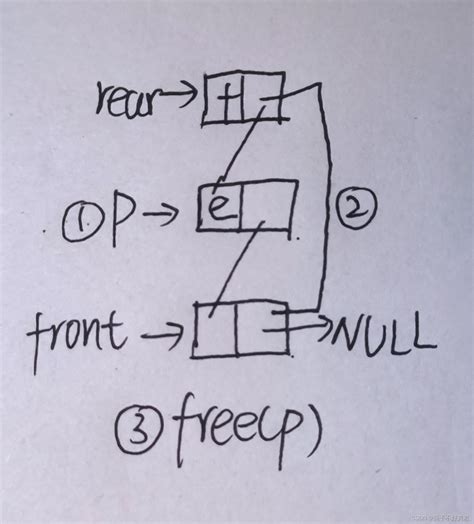 rear→ t
①p→ e ②
front→ →NULL
③free(p)